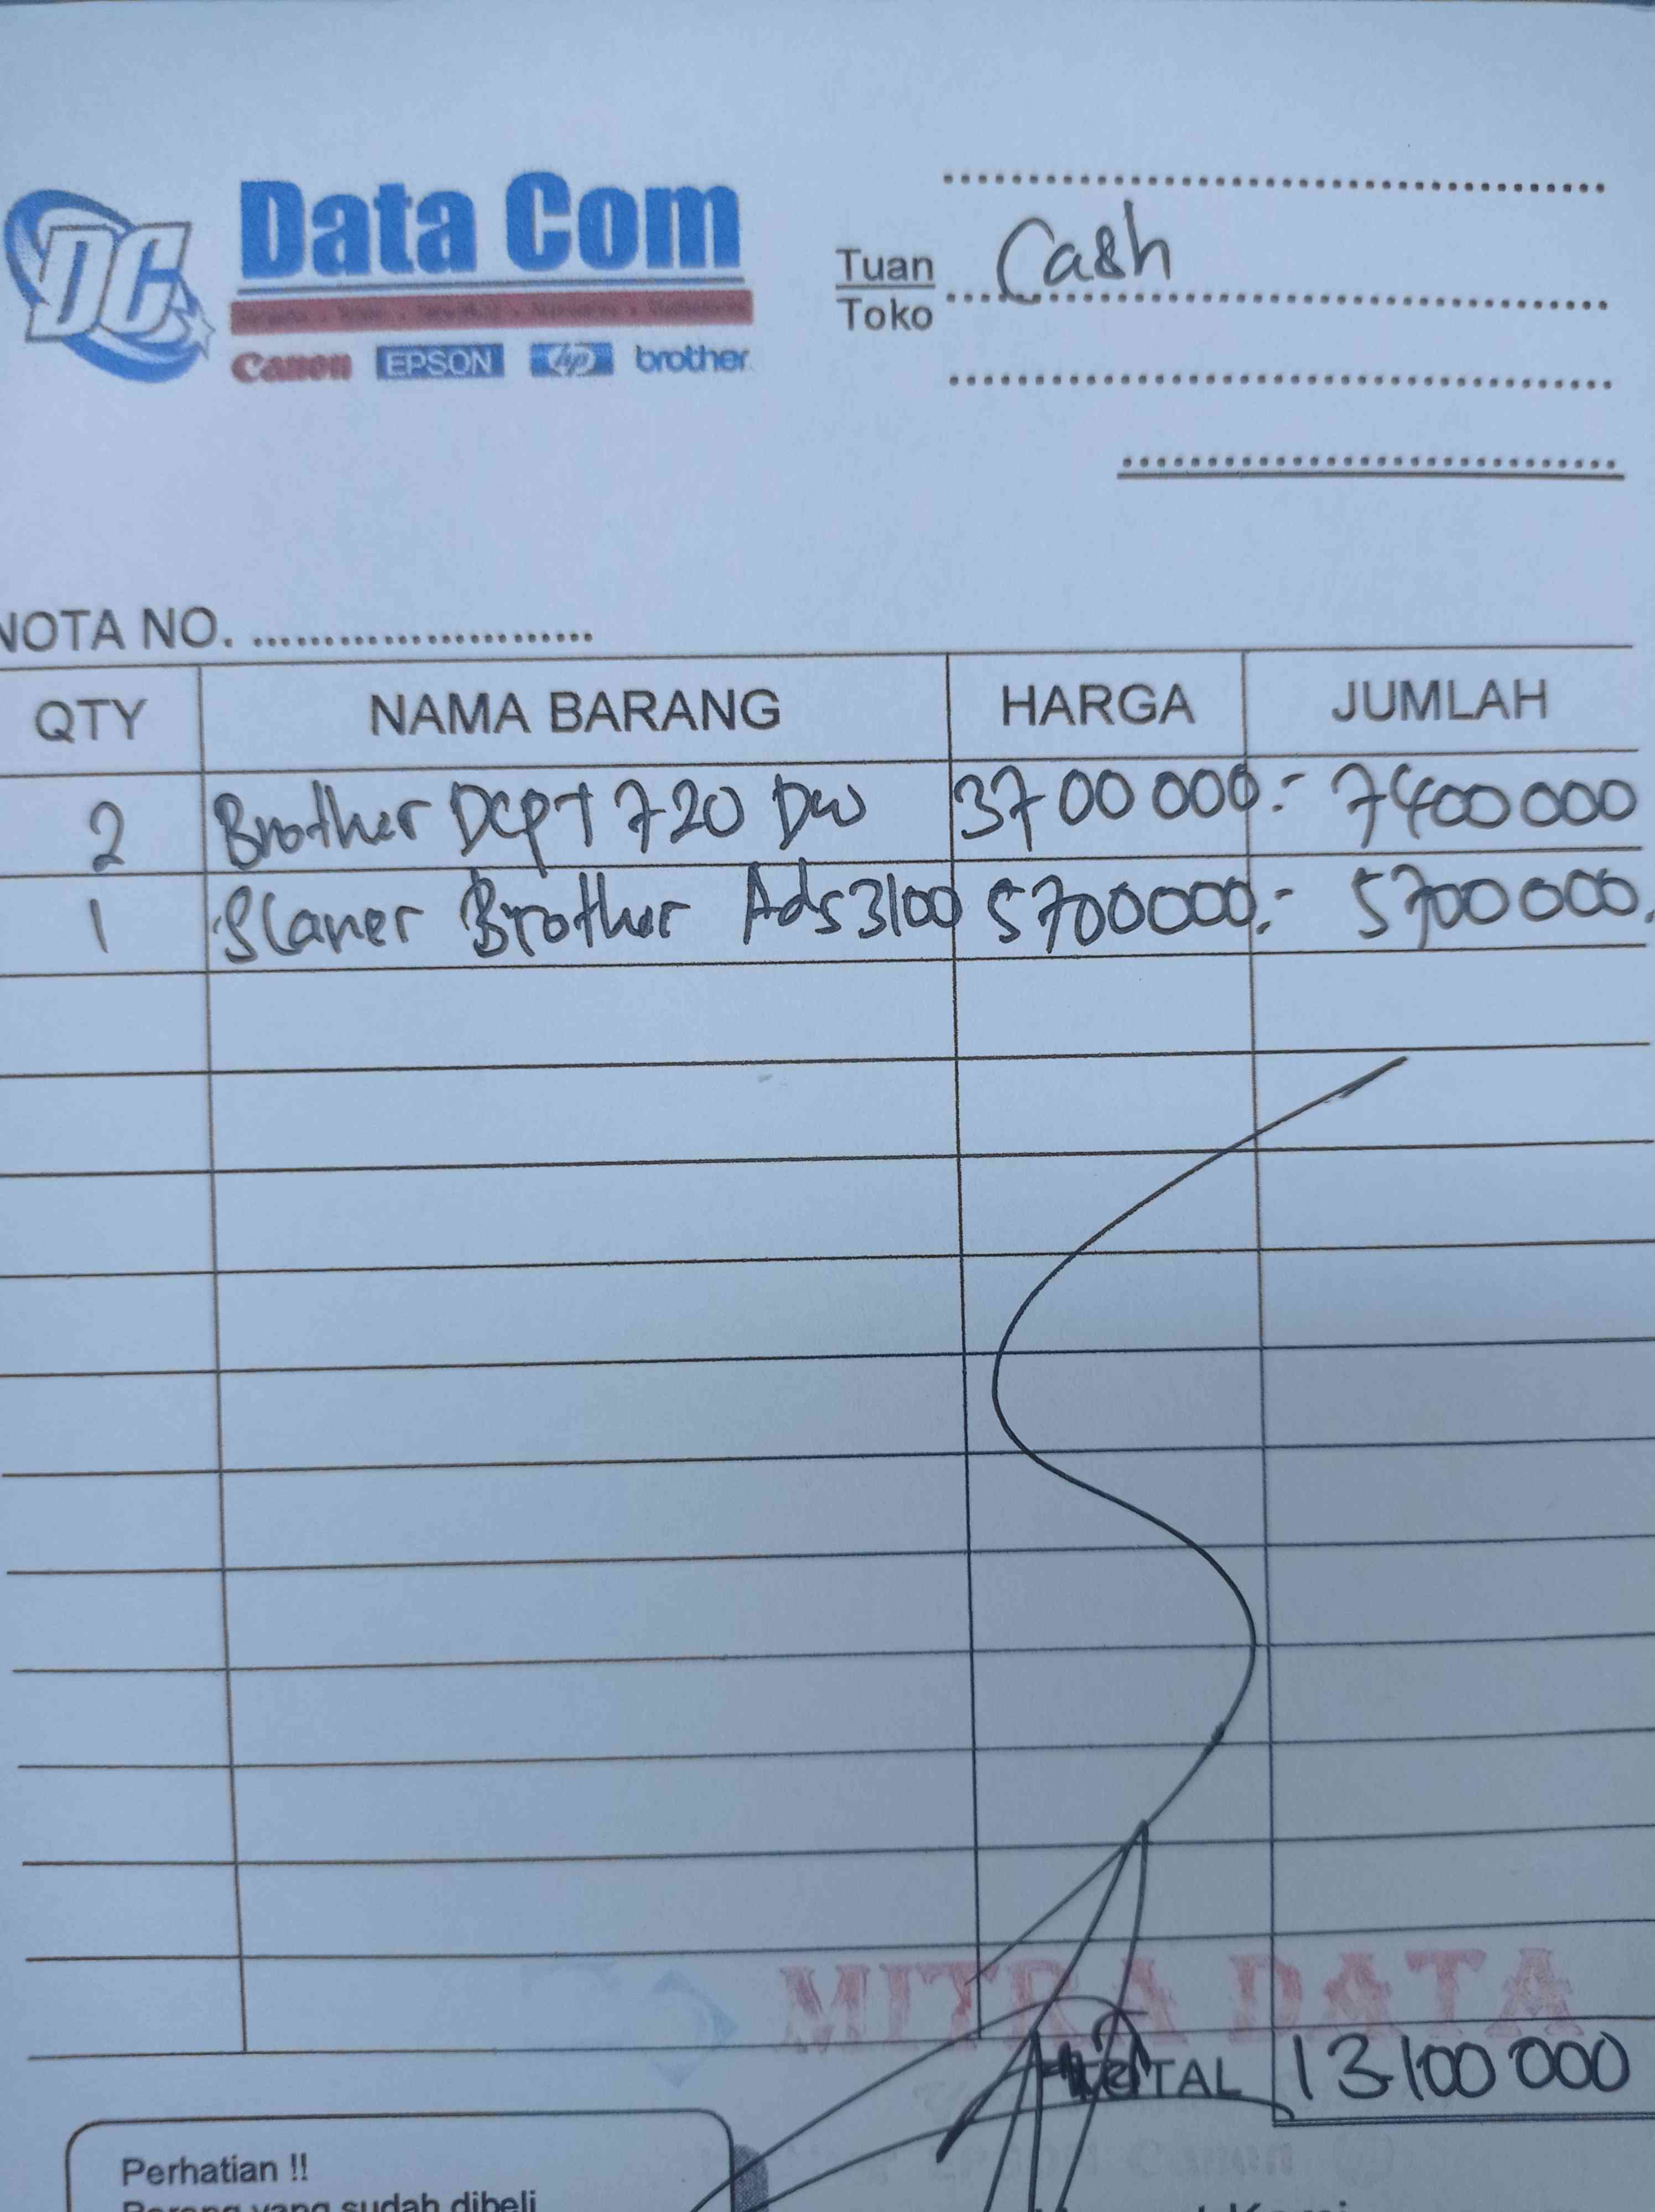 DC Data Com
Canon EPSON hp brother
Tuan Cash
Toko
NOTA NO.
QTY NAMA BARANG HARGA JUMLAH
2 Brother DCPT 720 DW 3700 000.- 7400 000
1 Scaner Brother Ads3100 5700000.- 5700 000.
MITRA DATA
TOTAL 13100 000
Perhatian !!
Barang yang sudah dibeli